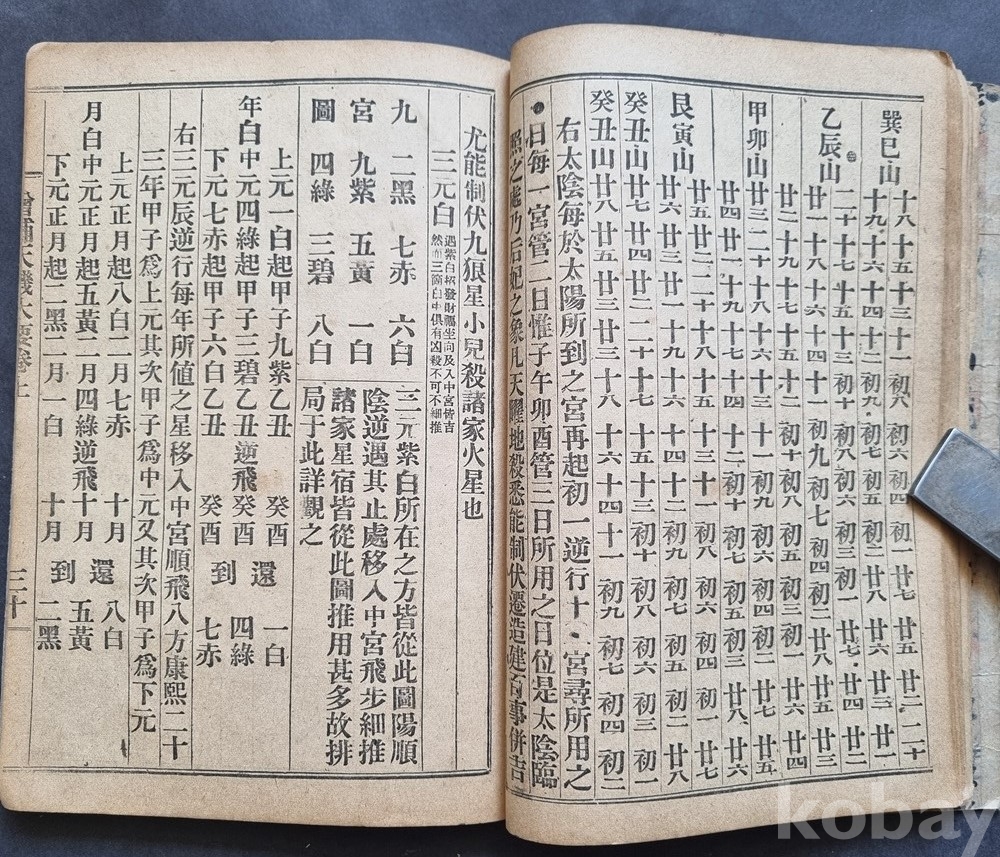 巽巳山
十八 十五 十三 十 初八 初六 初四 初一 廿七 廿五 廿二 二十
十九 十六 十四 十二 初九 初七 初五 初二 廿八 廿三 廿一
乙辰山
二十 十七 十五 十三 初十 初八 初六 初三 初一 廿七 廿四 廿二
廿一 十八 十六 十四 十一 初九 初七 初四 初二 廿八 廿五 廿三
甲卯山
廿二 十九 十七 十五 十二 初十 初八 初五 初三 初一 廿六 廿四
廿三 二十 十八 十六 十三 十一 初九 初六 初四 初二 廿七 廿五
廿四 廿一 十九 十七 十四 十二 初十 初七 初五 初三 廿八 廿六
廿五 廿二 二十 十八 十五 十三 十一 初八 初六 初四 初一
艮寅山 廿六 廿三 廿一 十九 十六 十四 十二 初九 初七 初五 初二 廿八
癸丑山 廿七 廿四 廿二 二十 十七 十五 十三 初十 初八 初六 初三 初一
癸丑山 廿八 廿五 廿三 十八 十六 十四 十一 初九 初七 初四 初二
右太陰每於太陽所到之宮再起初一逆行十一宮尋所用之
日每一宮管二日惟子午卯酉管三日所用之日位是太陰臨
照之處乃后妃之象凡天曜地殺悉能制伏遷造建百事併吉
尤能制伏九狼星小兒殺諸家火星也
三元白
遇紫白招發財 坐向及入中宮皆吉
然 三 白中俱有凶殺不可不細推
九 二黑 七赤 六白
宮 九紫 五黃 一白
圖 四綠 三碧 八白
三元紫白所在之方皆從此圖陽順
陰逆遇其止處移入中宮飛步細推
諸家星宿皆從此圖推用甚多故排
局于此詳觀之
上元一白起甲子九紫乙丑 癸酉 一白
年白中元四綠起甲子三碧乙丑逆飛 癸酉還到 四綠
下元七赤起甲子六白乙丑 癸酉 七赤
右三元辰逆行每年所值之星移入中宮順飛八方康熙二十
三年甲子爲上元其次甲子爲中元又其次甲子爲下元
上元正月起八白二月七赤 十月 八白
月白中元正月起五黃二月四綠逆飛十月還到 五黃
下元正月起二黑二月一白 十月 二黑
增補天機大要卷上 三十
kobay